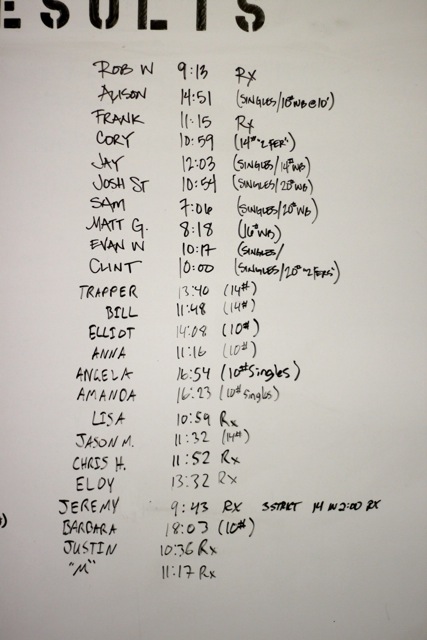 ESULTS
ROB W 9:13 Rx
ALISON 14:51 (SINGLES/10# WB @ 10')
FRANK 11:15 Rx
CORY 10:59 (14# ~2FERS')
JAY 12:03 (SINGLES/14# WB)
JOSH ST 10:54 (SINGLES/20# WB)
SAM 7:06 (SINGLES/20# WB)
MATT G. 8:18 (16# WB)
EVAN W 10:17 (SINGLES/
CLINT 10:00 (SINGLES/20# ~2FERS')
TRAPPER 13:40 (14#)
BILL 11:48 (14#)
ELLIOT 14:08 (10#)
ANNA 11:16 (10#)
ANGELA 16:54 (10# Singles)
AMANDA 16:23 (10# Singles)
LISA 10:59 Rx
JASON M. 11:32 (14#)
CHRIS H. 11:52 Rx
ELOY 13:32 Rx
JEREMY 9:43 Rx 3 STRKT 14 IN 2:00 RX
BARBARA 18:03 (10#)
JUSTIN 10:36 Rx
"M" 11:17 Rx